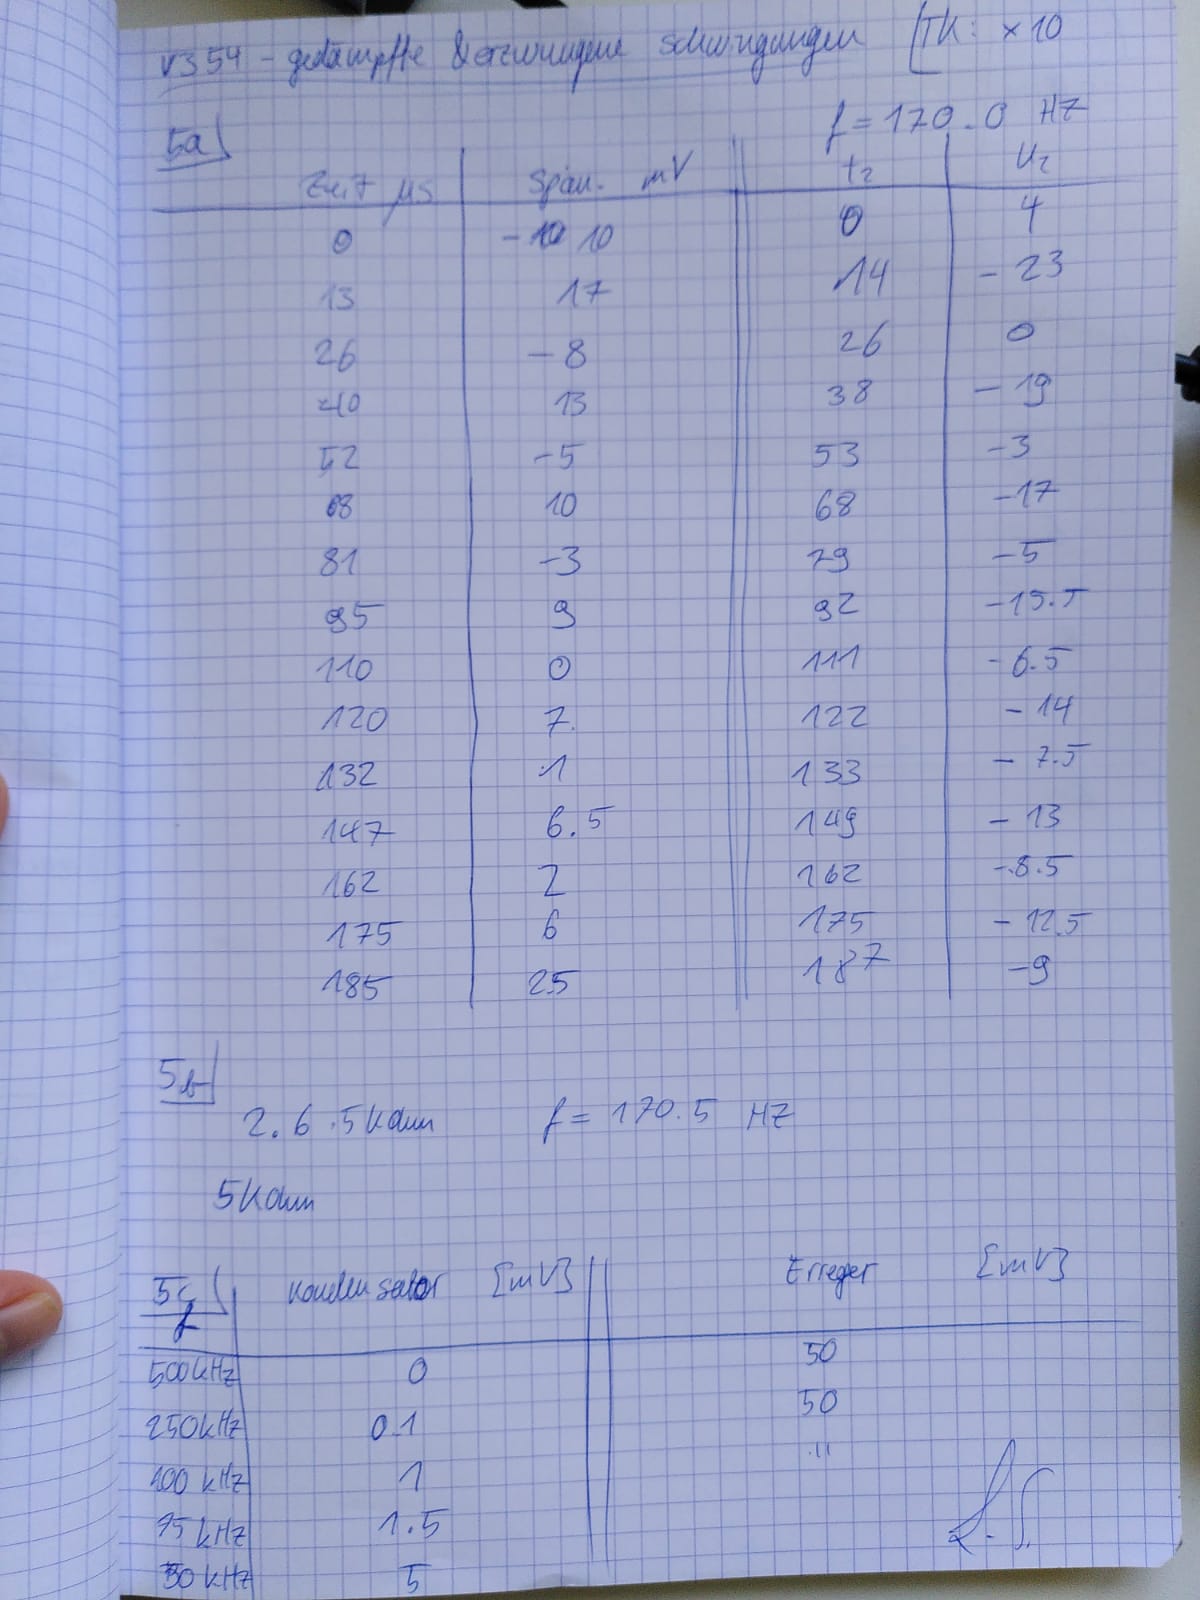 V354 - gedämpfte & erzwungene Schwingungen [TK: x10
f = 170.0 Hz
5a)
Zeit µs Span. mV t2 U2
0 -10 0 4
13 17 14 -23
26 -8 26 0
40 13 38 -19
52 -5 53 -3
68 10 68 -17
81 -3 79 -5
95 9 92 -15.5
110 0 111 -6.5
120 7 122 -14
132 1 133 -7.5
147 6.5 149 -13
162 2 162 -8.5
175 6 175 -12.5
185 2.5 187 -9
5b)
2. 6.5 kOhm f = 170.5 Hz
5 kOhm
5c) Kondensator [mV] Erreger [mV]
f
500 kHz 0 50
250 kHz 0.1 50
100 kHz 1 "
75 kHz 1.5
50 kHz 5